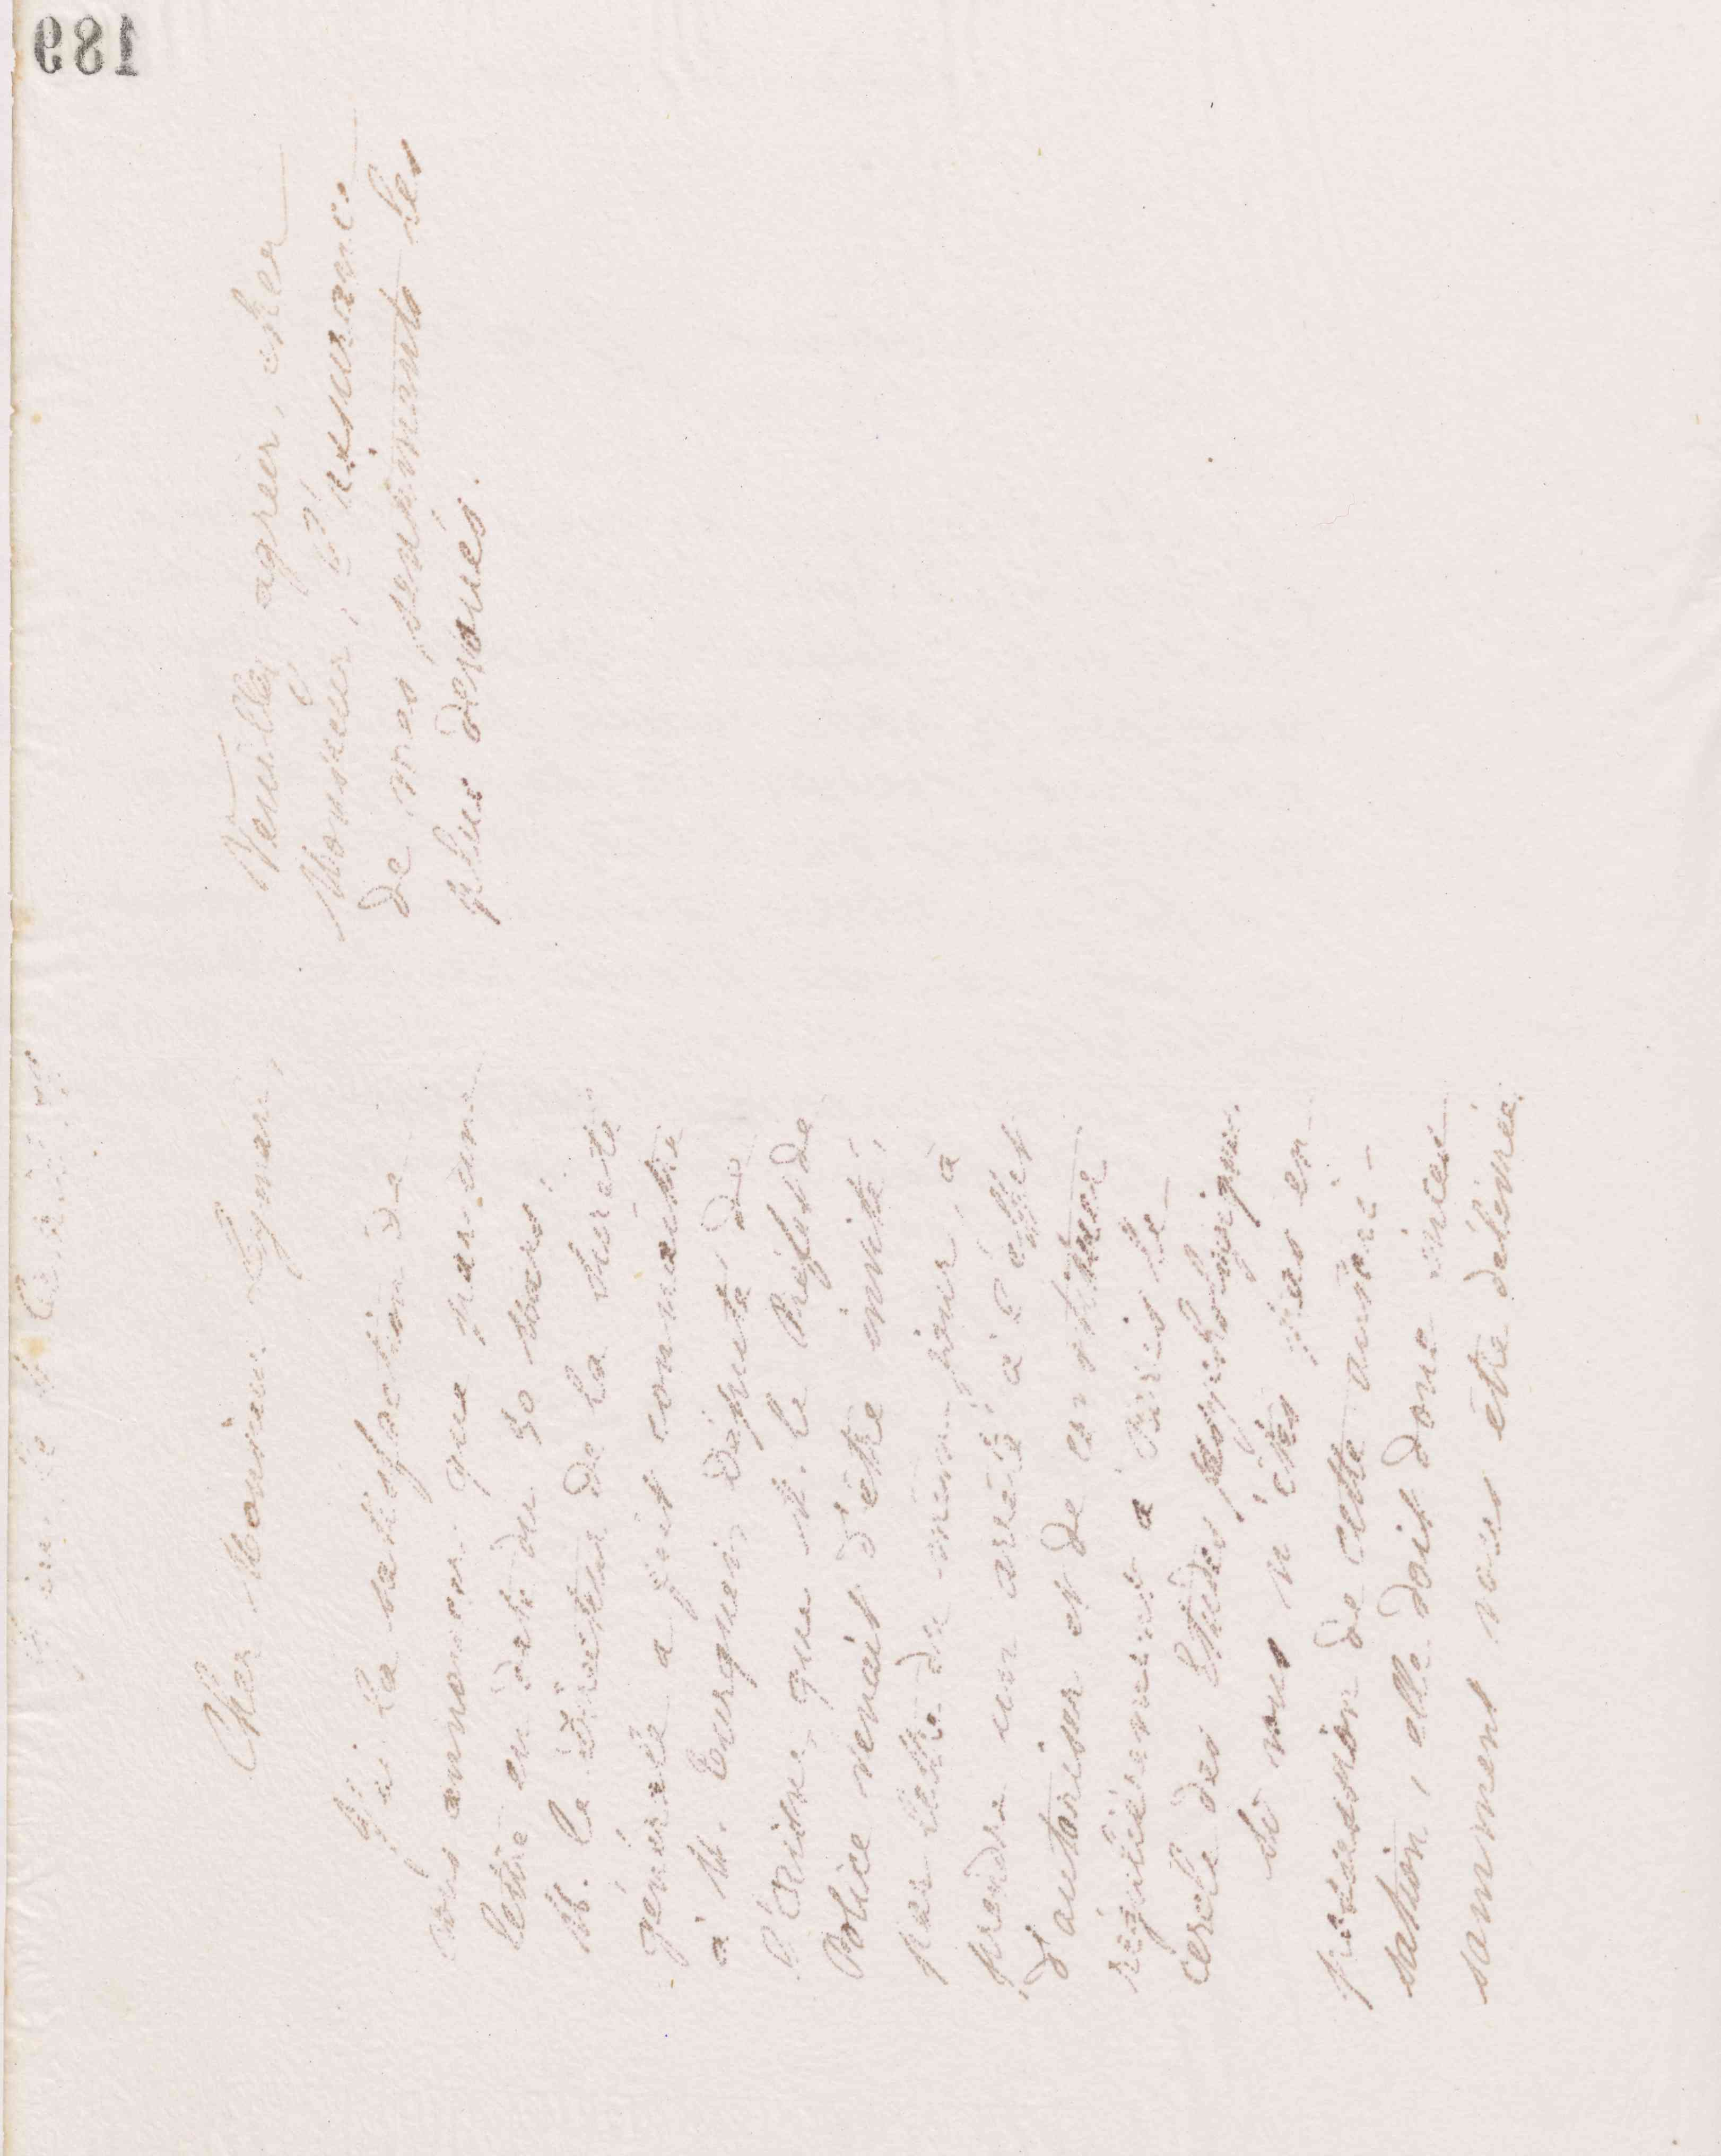 189
Cher Monsieur Leymarie,
J'ai la satisfaction de
vous annoncer que par une
lettre en date du 30 mars,
M. le Directeur de la Sureté
générale a fait connaître
à M. Turquin, député de
l'Aisne, que M. le Préfet de
Police venait d'être invité,
par lettre du même jour, à
prendre un arrêté à l'effet
d'autoriser et de constituer
régulièrement à Paris le
cercle des Etudes psychologiques.
Si vous n'êtes pas en
possession de cette autori-
sation, elle doit donc inces
samment vous être délivrée.
Veuillez agréer, cher
Monsieur, l'assurance
de mes sentiments les
plus dévoués.